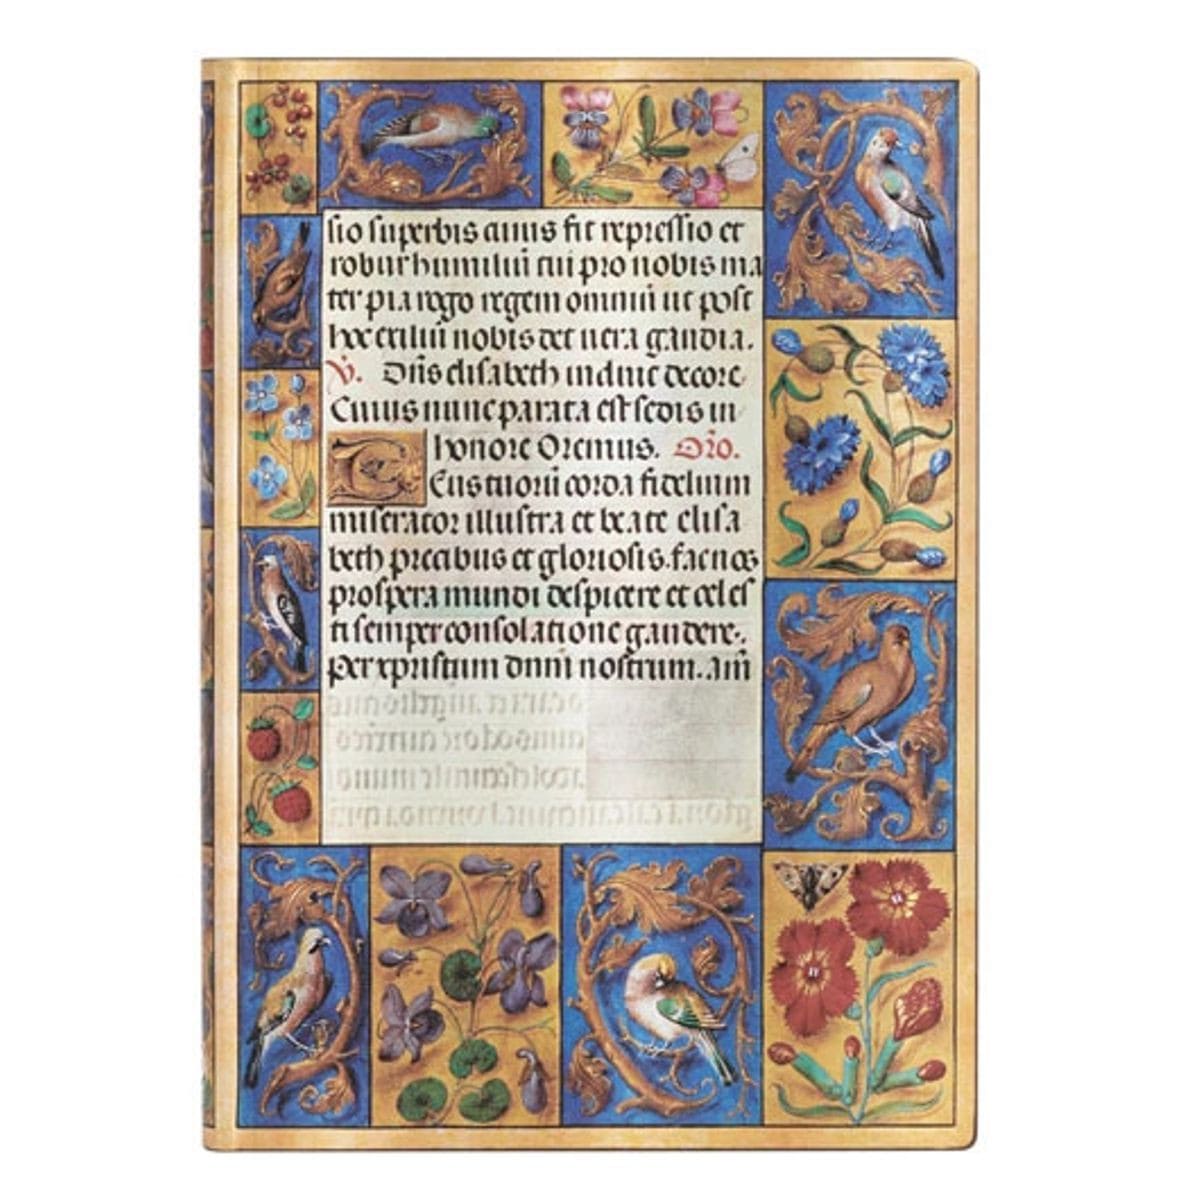 sio superbis cuius fit repressio et
robur humiliũ tui pro nobis ma
ter pia rogo regem omniũ ut post
hoc exiliũ nobis det uera gaudia.
V̄. Diĩs elisabeth induit decore.
Cuius nunc parata est sedis in
honore Oremus. Orõ.
Deus tuorũ corda fidelium
miserator illustra et beate elisa
beth precibus et gloriosis. fac nos
prospera mundi despicere et celes
ti semper consolatione gaudere.
Per xpristum dnm̃ nostrum. Am̃